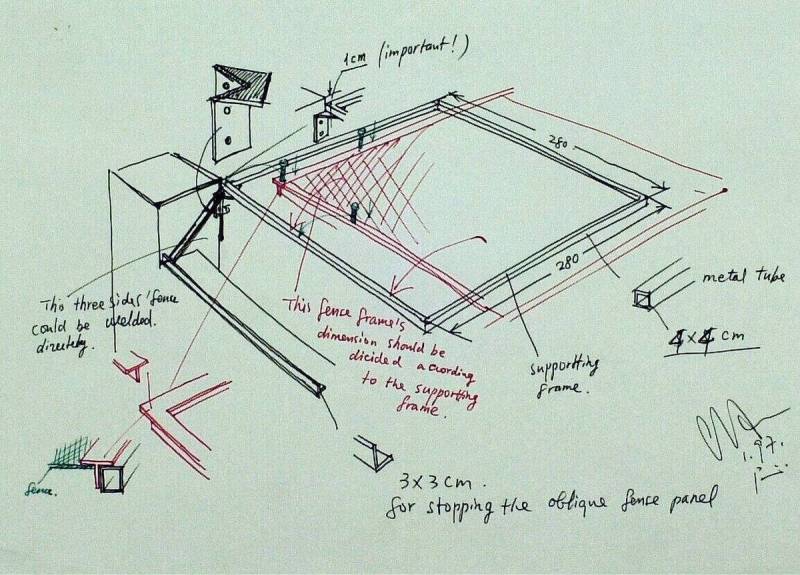 1cm (important!)
280
280
metal tube
4x4 cm
Tho three sides' fence
could be welded.
directely.
This fence frame's
dimension should be
dicided acuording
to the supporting
frame.
supportting
frame.
fence.
3x3cm.
for stopping the oblique fense panel
1.97.